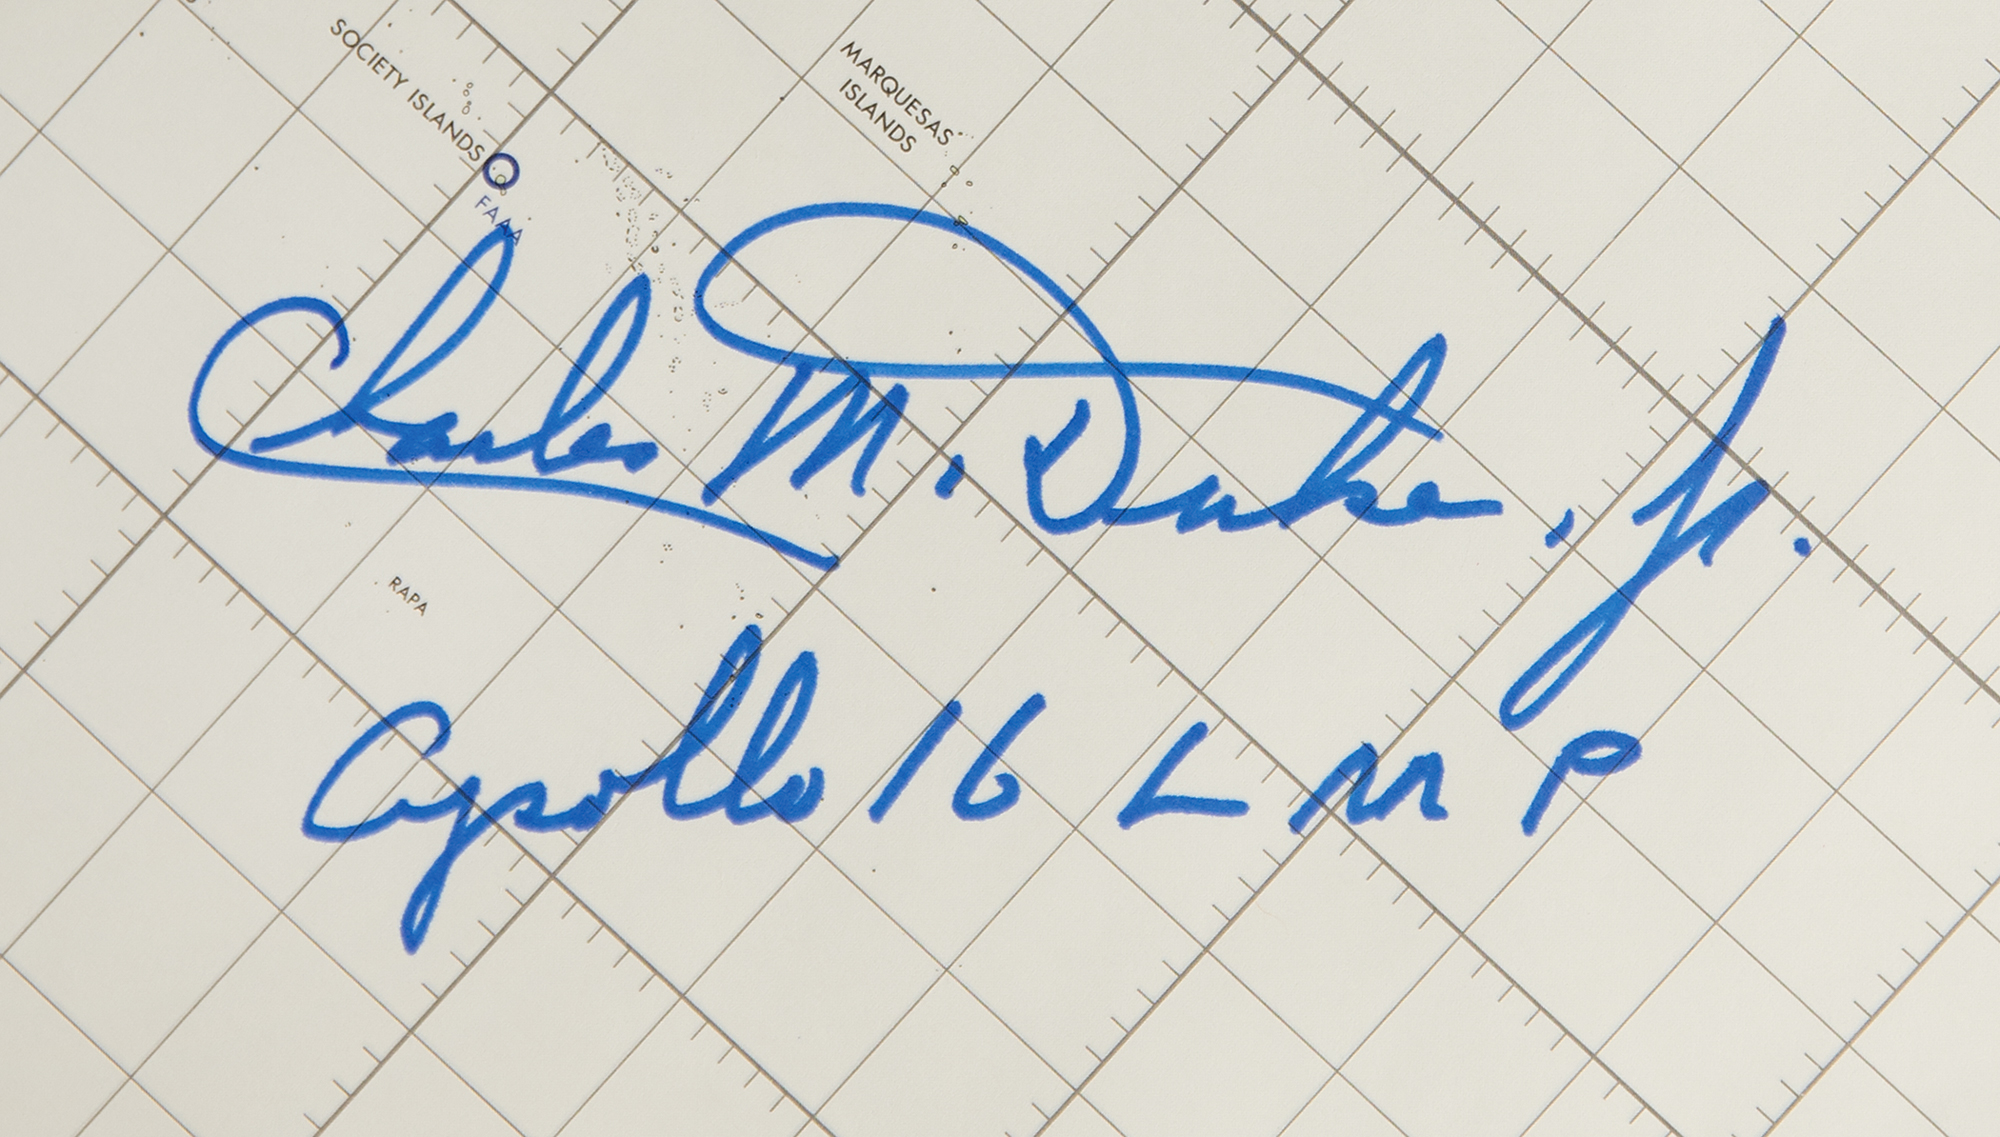 SOCIETY ISLANDS
MARQUESAS
ISLANDS
FAAA
Charles M. Duke, Jr.
RAPA
Apollo 16 L M P